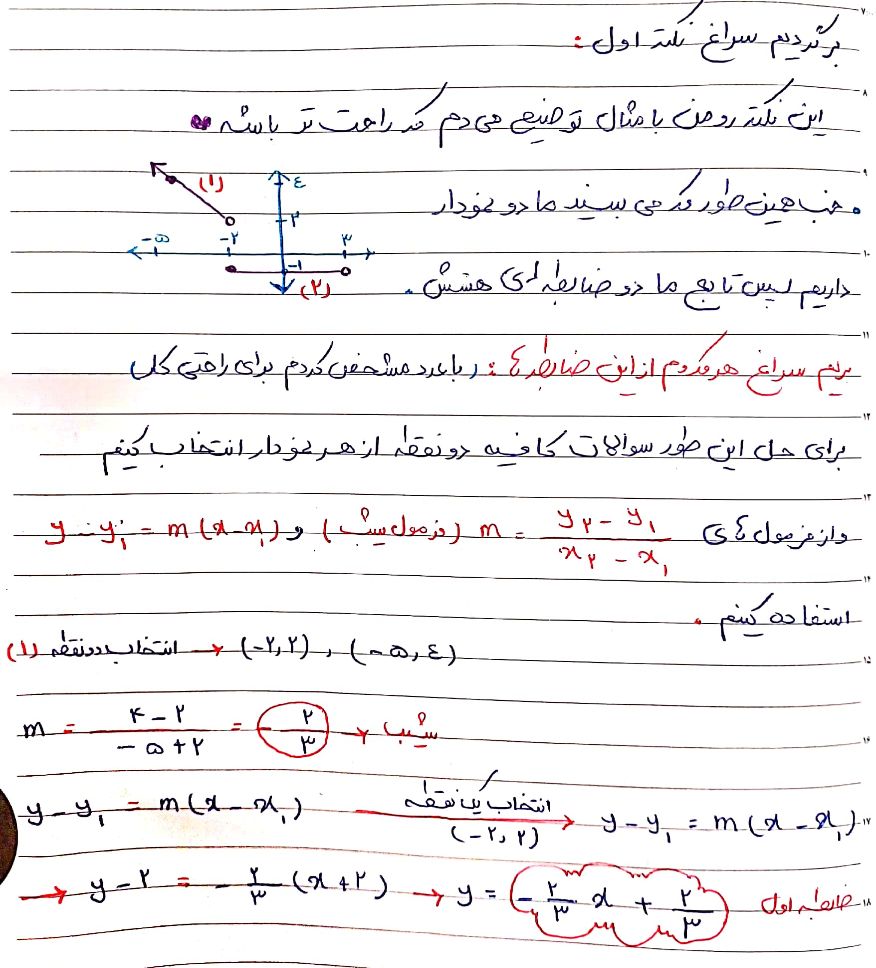 برگردیم سراغ نکته اول :
این نکته رو من با مثال توضیح می دم که راحت تر باشه
خب همین طور که می بینید ما دو نمودار
(۱) ٤ ۲ -۵ -۲ ۳ -۱ (۲)
داریم پس تابع ما دو ضابطه ای هستش .
بریم سراغ هر کدوم از این ضابطه ها : ( با عدد مشخص کردم برای راحتی کار
برای حل این طور سوالات کافیه دو نقطه از هر نمودار انتخاب کنیم
و از فرمول های m = y₂ - y₁ / x₂ - x₁ (فرمول شیب) و y - y₁ = m(x - x₁)
استفاده کنیم .
(۱) انتخاب دو نقطه → (-۲,۲) , (-۵,٤)
m = ۴-۲ / -۵+۲ = -۲/۳ → شیب
y - y₁ = m(x - x₁) انتخاب یک نقطه (-۲,۲) → y - y₁ = m(x - x₁)
→ y - ۲ = -۲/۳ (x+۲) → y = -۲/۳ x + ۲/۳ ضابطه اول